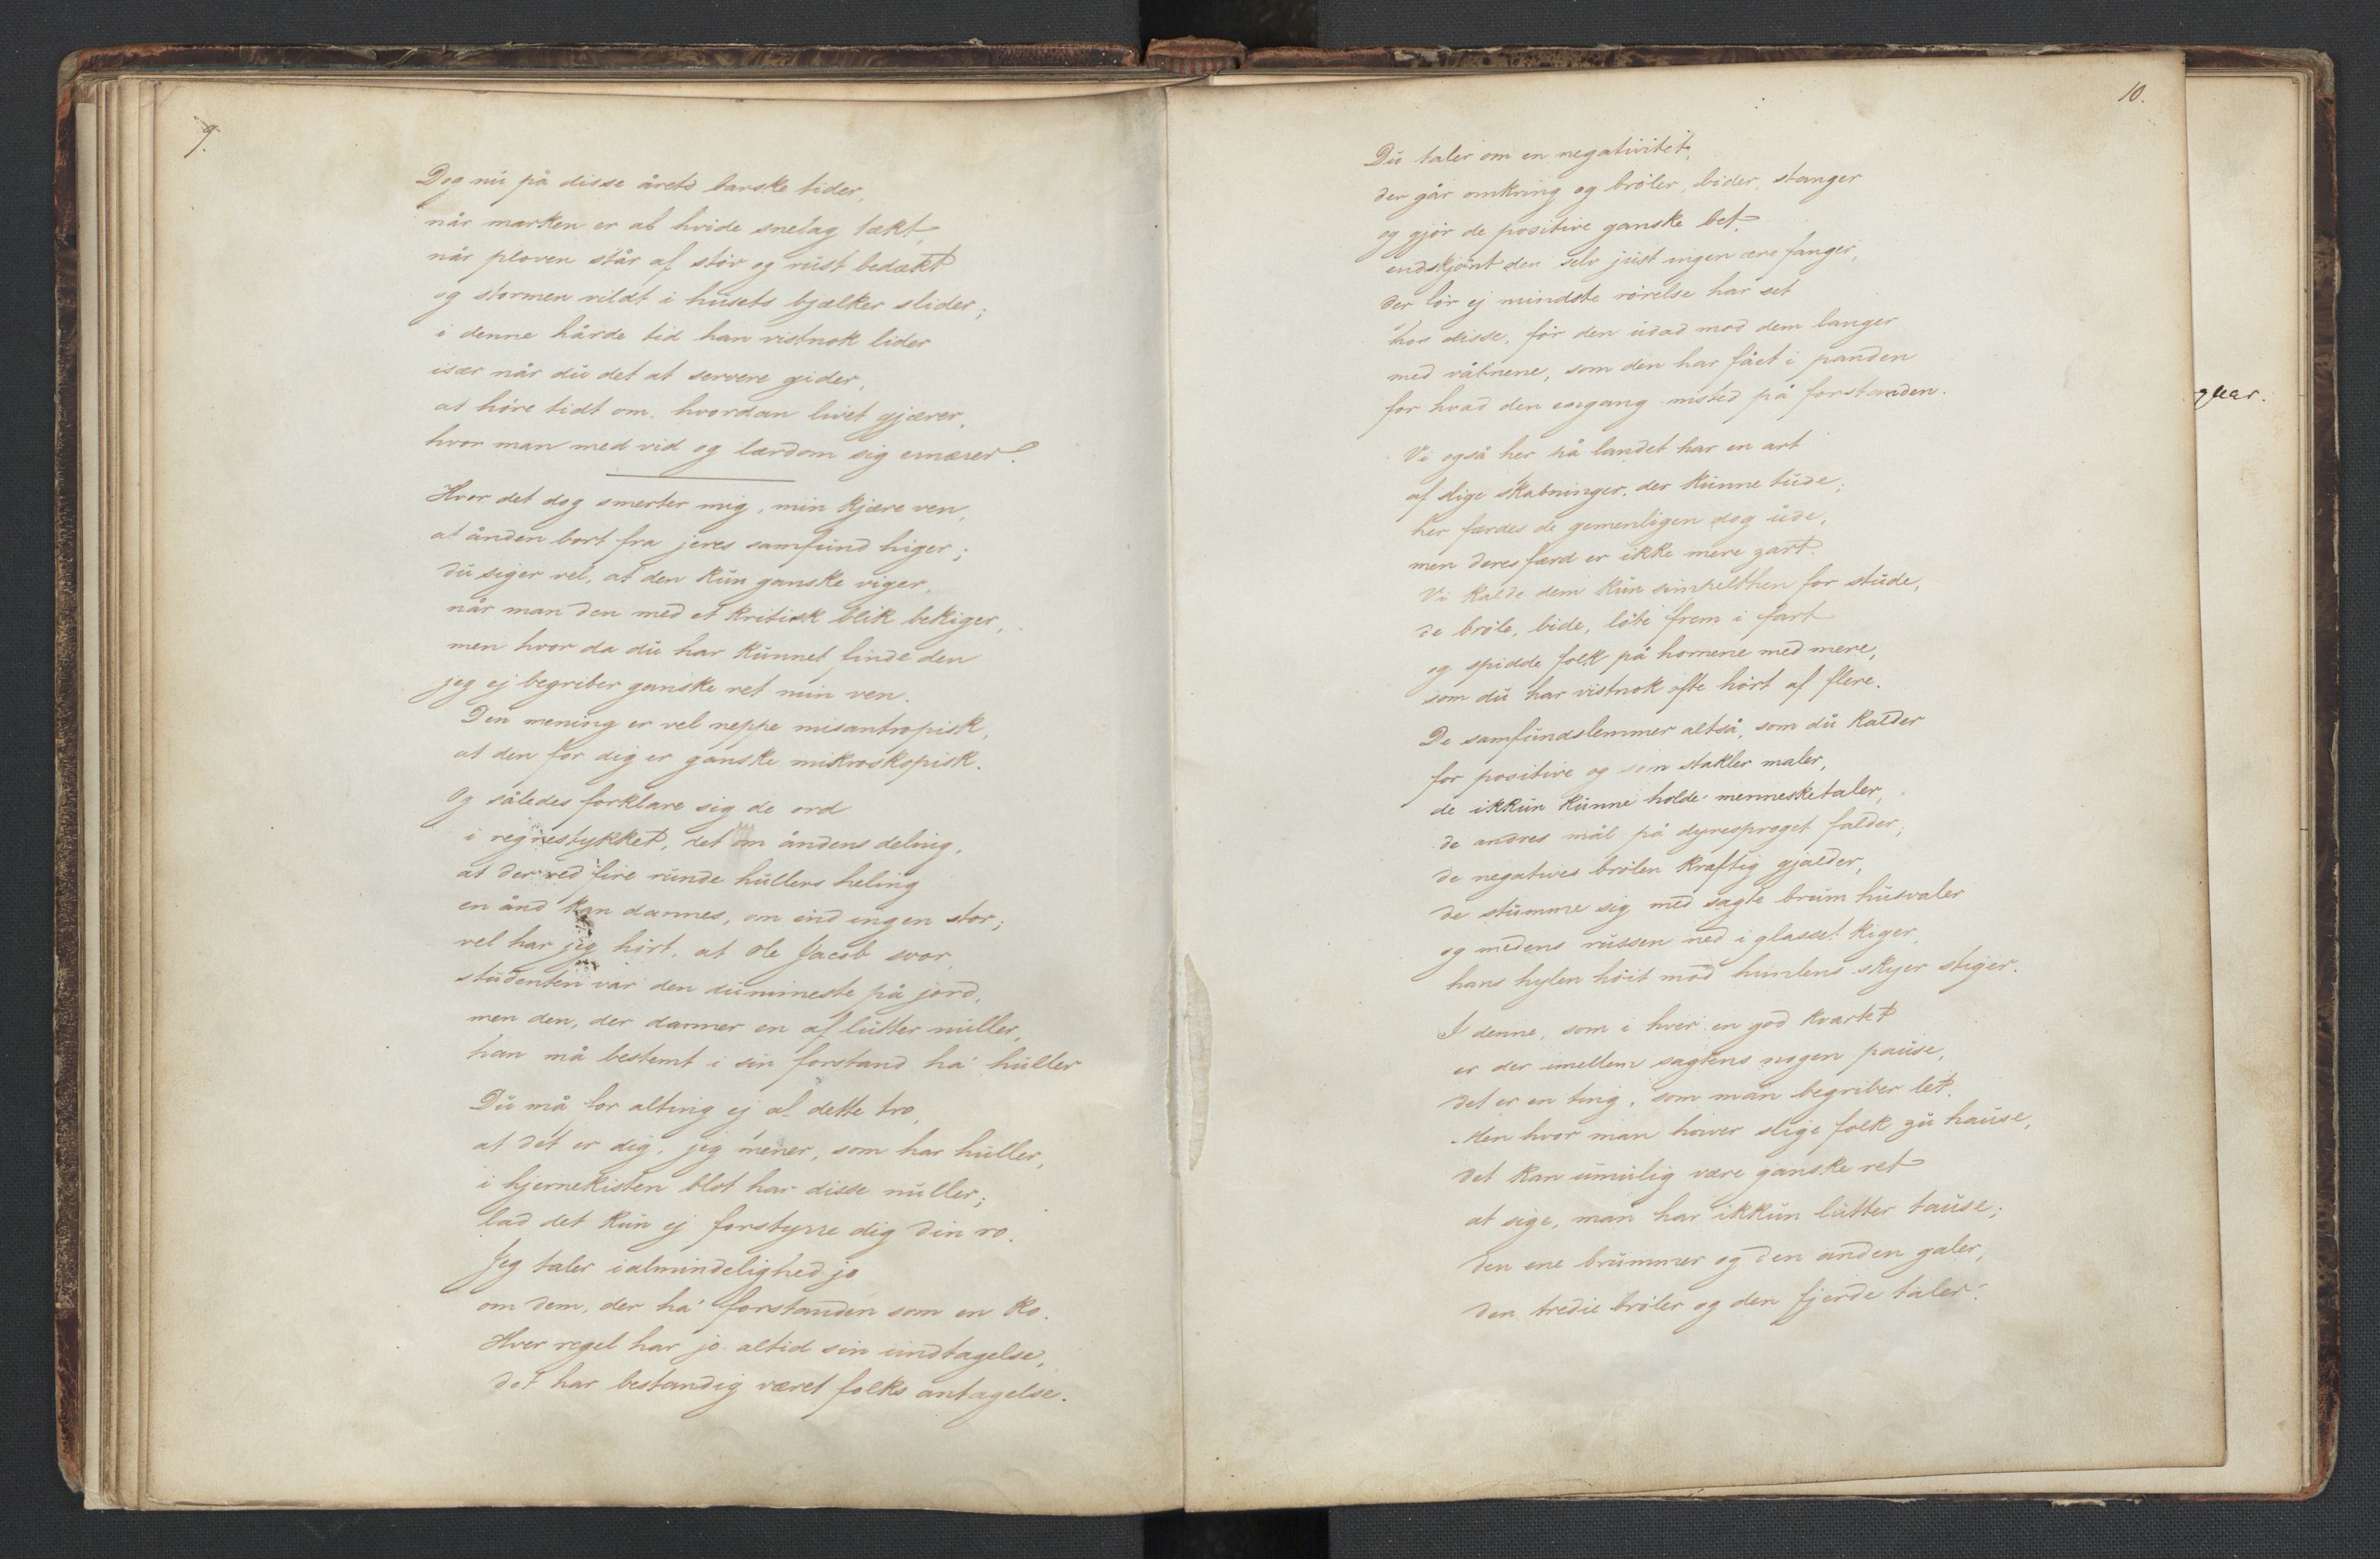 9.
Dog nu på disse årets barske tider,
når marken er af hvide snelag takt,
når ploven står af støv og rust bedækt
og stormen vildt i husets bjælker slider;
i denne hårde tid han vistnok lider
især når du det at servere gider,
at høre tidt om, hvordan livet gjærer,
hvor man med vid og lærdom sig ernærer.
Hvor det dog smerter mig, min kjære ven,
at ånden bort fra jeres samfund higer;
du siger vel, at den kun ganske viger,
når man den med et kritisk blik bekiger,
men hvor da du har kunnet finde den
jeg ej begriber ganske ret min ven.
Den mening er vel neppe misantropisk,
at den for dig er ganske mikroskopisk.
Og således forklare sig de ord
i regnestykket, det om åndens deling,
at der ved fire runde hullers heling
en ånd kan dannes, om end ingen stor;
vel har jeg hørt, at Ole Jacob svor,
studenten var den dummeste på jord,
men den, der danner en af lutter nuller,
han må bestemt i sin forstand ha' huller
Du må for alting ej af dette tro,
at det er dig, jeg mener, som har huller,
i hjernekisten blot har disse nuller;
lad det kun ej forstyrre dig din ro.
Jeg taler ialmindelighed jo
om dem, der ha' forstanden som en ko.
Hver regel har jo altid sin undtagelse,
det har bestandig været folks antagelse.
10.
Du taler om en negativitet,
der går omkring og brøler, bider, stanger
og gjør de positive ganske bet,
endskjønt den selv just ingen ære fanger,
der før ej mindste rørelse har set
hos disse, før den udad mod dem langer
med våbnene, som den har fået i panden
for hvad den engang misted på forstanden.
Vi også her på landet har en art
af slige skabninger, der kunne tude;
her færdes de gemenligen dog ude,
men deres færd er ikke mere zart.
Vi kalde dem kun simpelthen for stude,
de brøle, bide, løbe frem i fart
og spidde folk på hornene med mere,
som du har vistnok ofte hørt af flere.
De samfundslemmer altså, som du kalder
for positive og som stakler maler,
de ikkun kunne holde mennesketaler,
de andres mål på dyresproget falder;
de negatives brølen kraftig gjalder,
de stumme sig med sagte brum husvaler
og medens russen ned i glasset kiger,
hans hylen høit mod himlens skyer stiger.
I denne, som i hver en god kvartet
er der imellem sagtens nogen pause,
det er en ting, som man begriber let.
Men hvor man haver slige folk zu hause,
det kan umulig være ganske ret
at sige, man har ikkun lutter tause;
den ene brummer og den anden galer,
den tredie brøler og den fjerde taler.